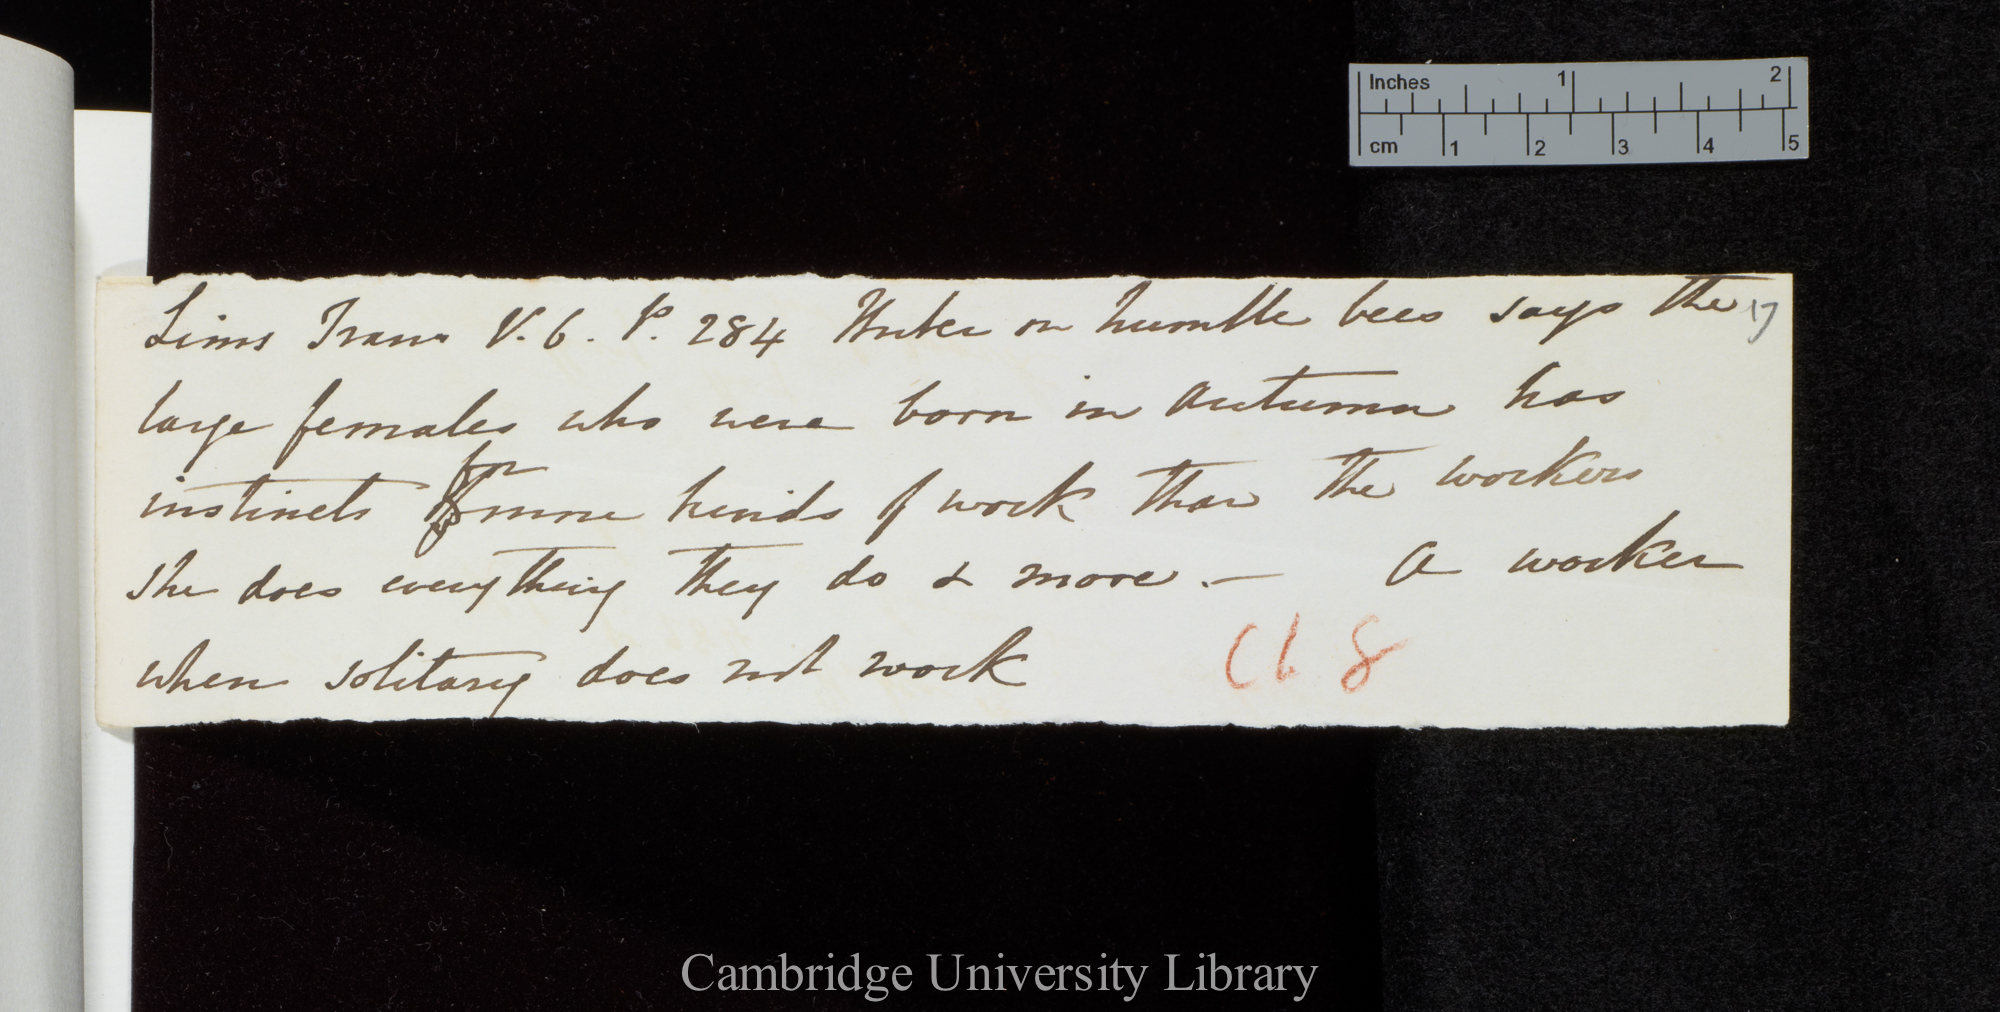 Inches 1 2
cm 1 2 3 4 5
Linns Trans V. 6. P. 284 Huber on humble bees says the 17
large females who were born in autumn has
for
instincts more kinds of work than the workers
she does everything they do & more. — A worker
when solitary does not work
Ch 8
Cambridge University Library